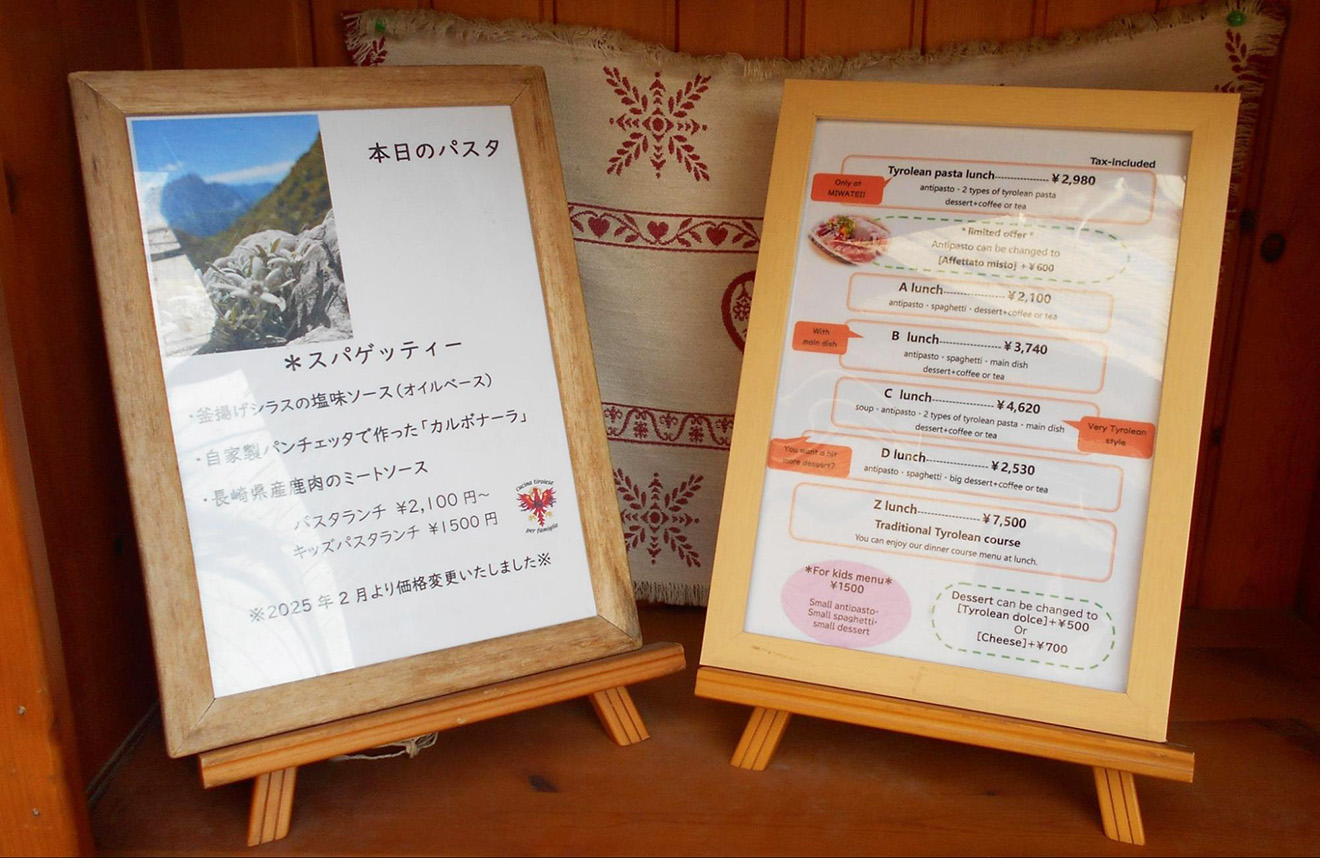 本日のパスタ
＊スパゲッティー
・釜揚げシラスの塩味ソース（オイルベース）
・自家製パンチェッタで作った「カルボナーラ」
・長崎県産鹿肉のミートソース
パスタランチ ￥2,100 円～
キッズパスタランチ ￥1500 円
cucina tirolese
per famiglia
※2025 年 2 月より価格変更いたしました※
Tax-included
Tyrolean pasta lunch--------------- ￥2,980
Only at
MIWATE!!
antipasto・2 types of tyrolean pasta
dessert+coffee or tea
* limited offer *
Antipasto can be changed to
[Affettato misto] +￥600
A lunch----------------- ￥2,100
antipasto・spaghetti・dessert+coffee or tea
With
main dish
B lunch----------------- ￥3,740
antipasto・spaghetti・main dish
dessert+coffee or tea
C lunch------------------ ￥4,620
soup・antipasto・2 types of tyrolean pasta・main dish
dessert+coffee or tea
Very Tyrolean
style
You want a bit
more dessert?
D lunch------------------ ￥2,530
antipasto・spaghetti・big dessert+coffee or tea
Z lunch------------------ ￥7,500
Traditional Tyrolean course
You can enjoy our dinner course menu at lunch.
*For kids menu*
￥1500
Small antipasto・
Small spaghetti・
small dessert
Dessert can be changed to
[Tyrolean dolce]+￥500
Or
[Cheese]+￥700